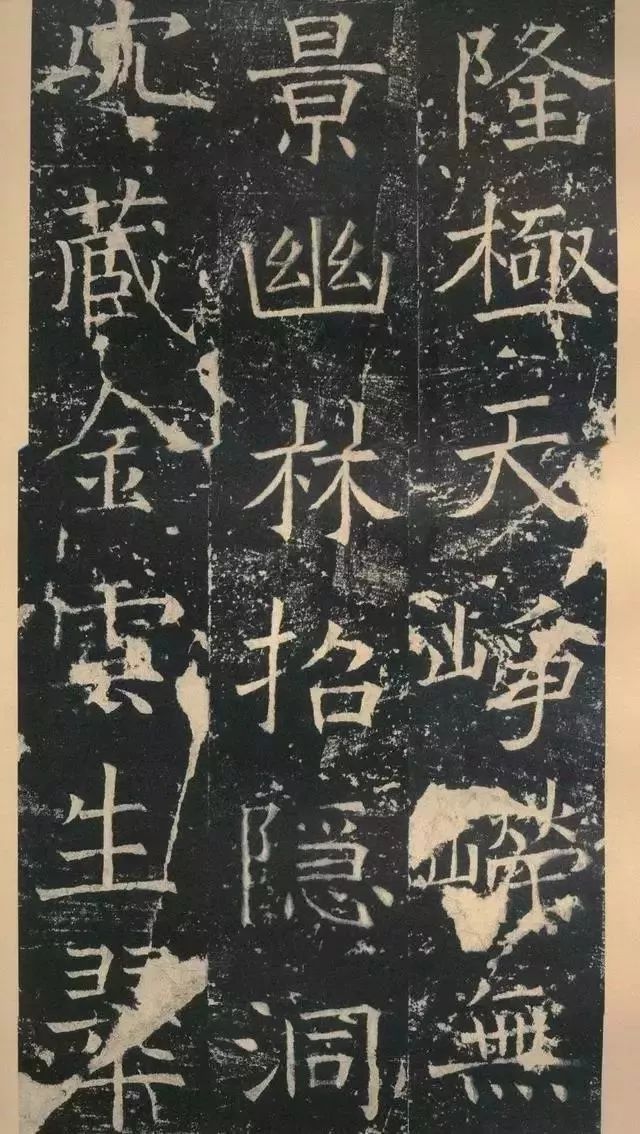 隆極天崢嶸無
景幽林招隱洞
穴藏金雲生